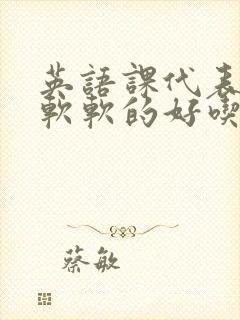 英語課代表
軟軟的好喫
蔡敏